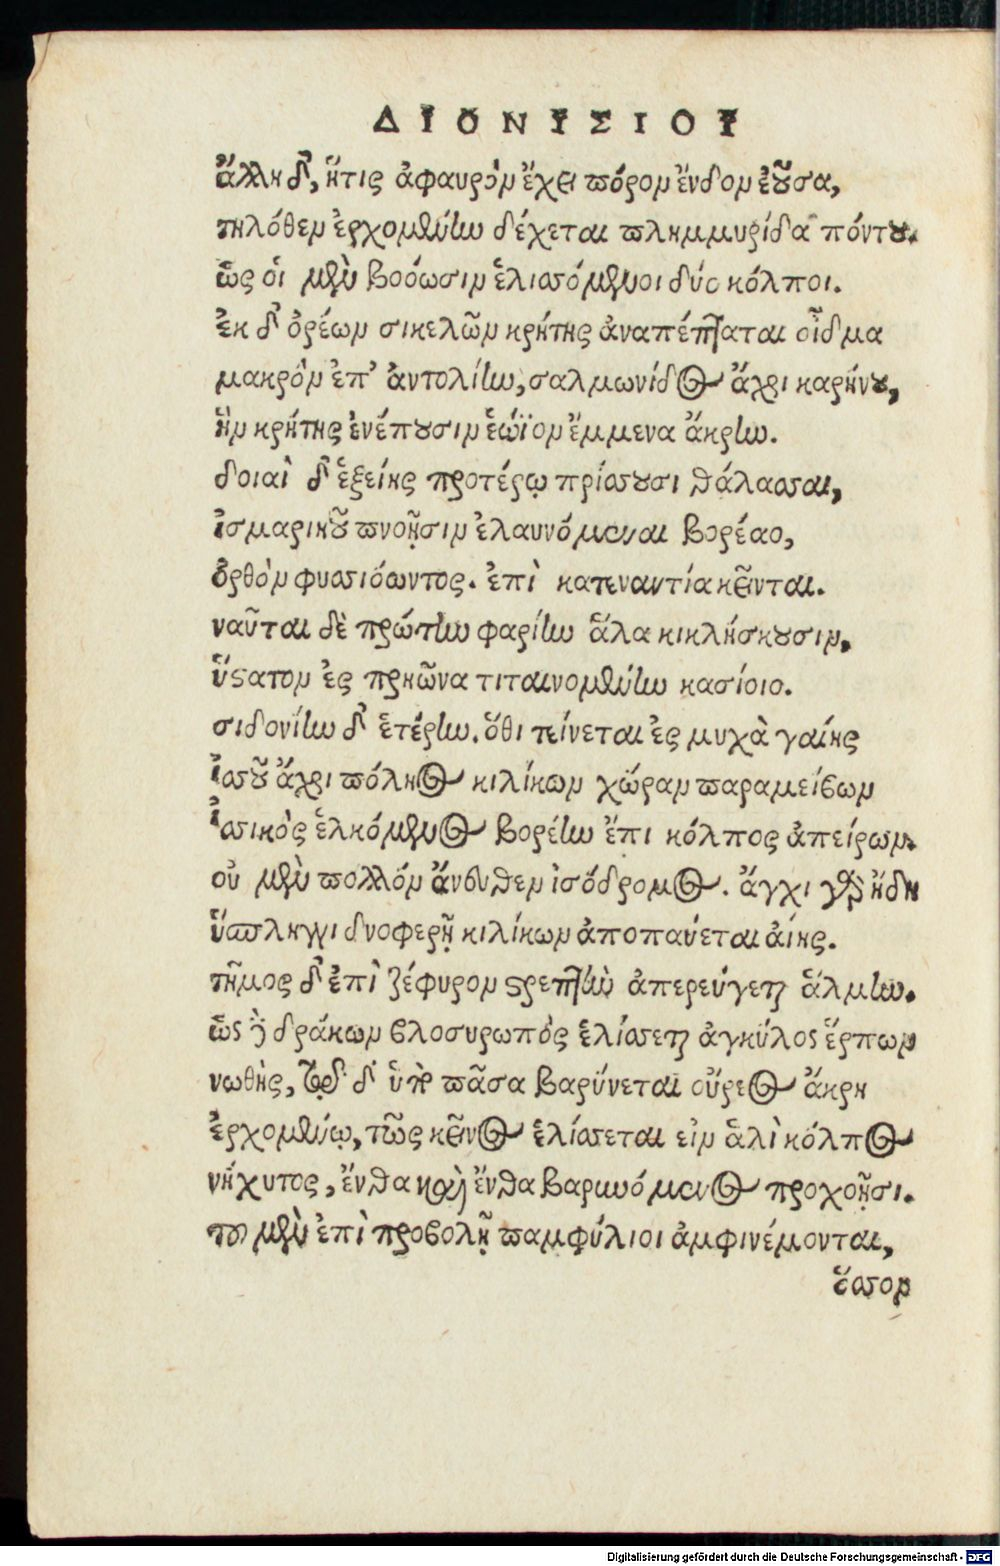 ΔΙΟΝΥΣΙΟΥ
ἄλλη δ', ἥτις ἀφαυρὸν ἔχει πόρον ἔνδον ἐοῦσα,
τηλόθεν ἐρχομένην δέχεται πλημμυρίδα πόντου.
ὣς οἱ μὲν βοόωσιν ἑλισσόμενοι δύο κόλποι.
ἐκ δ' ὀρέων σικελῶν κρήτης ἀναπέπταται οἶδμα
μακρὸν ἐπ' ἀντολίην, σαλμωνίδος ἄχρι καρήνου,
ἣν κρήτης ἐνέπουσιν ἑώϊον ἔμμεναι ἄκρην.
δοιαὶ δ' ἑξείης προτέρῳ πρίσσουσι θάλασσαι,
ἰσμαρικοῦ πνοῇσιν ἐλαυνόμεναι βορέαο,
ὀρθὸν φυσιόωντος. ἐπὶ κατεναντία κεῖνται.
ναῦται δὲ πρώτην φαρίην ἅλα κικλήσκουσιν,
ὕστατον ἐς πρηῶνα τιταινομένην κασίοιο.
σιδονίην δ' ἑτέρην. ὅθι τείνεται ἐς μυχὰ γαίης
ἰσσοῦ ἄχρι πόληος κιλίκων χώραν παραμείβων
ἰσσικὸς ἑλκόμενος βορέην ἔπι κόλπος ἀπείρων.
οὐ μὲν πολλὸν ἄνευθεν ἰσόδρομος. ἄγχι γὰρ ἤδη
ὕσπληγγι δνοφερῇ κιλίκων ἀποπαύεται αἴης.
τῆμος δ' ἐπὶ ζέφυρον στρεπτὴν ἀπερεύγεται ἅλμην.
ὡς δὲ δράκων βλοσυρωπὸς ἑλίσσεται ἀγκύλος ἕρπων
νωθὴς, τῷ δ' ὑπὸ πᾶσα βαρύνεται οὔρεος ἄκρη
ἐρχομένῳ, τὼς κεῖνος ἑλίσσεται εἰν ἁλὶ κόλπος
νήχυτος, ἔνθα καὶ ἔνθα βαρυνόμενος προχοῇσι.
τοῦ μὲν ἐπὶ προβολῇ παμφύλιοι ἀμφινέμονται,
ὅσσον